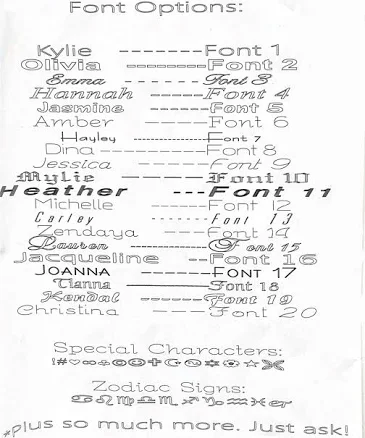 Font Options:
Kylie --------Font 1
Olivia --------Font 2
Emma -------Font 3
Hannah -----Font 4
Jasmine ------Font 5
Amber -----Font 6
Hayley -----------Font 7
Dina --------Font 8
Jessica ------Font 9
Mylie ------Font 10
Heather ---Font 11
Michelle ------Font 12
Carley -------Font 13
Zendaya -----Font 14
Lauren -----------Font 15
Jacqueline --Font 16
JOANNA ------FONT 17
Tianna ---------Font 18
Kendal ------Font 19
Christina ----Font 20
Special Characters:
Zodiac Signs:
*plus so much more. Just ask!